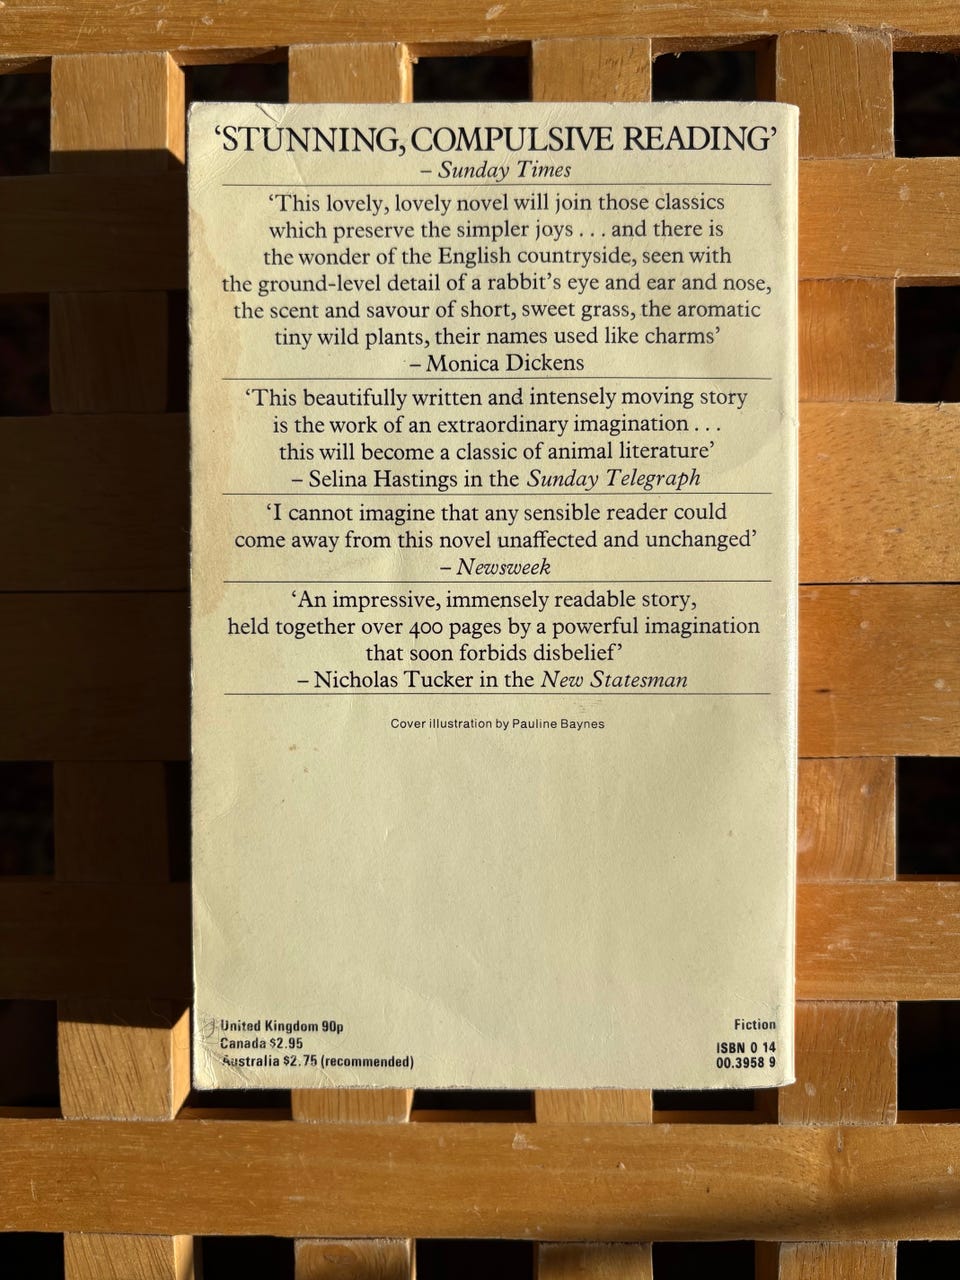 ‘STUNNING, COMPULSIVE READING’
– Sunday Times
‘This lovely, lovely novel will join those classics
which preserve the simpler joys . . . and there is
the wonder of the English countryside, seen with
the ground-level detail of a rabbit’s eye and ear and nose,
the scent and savour of short, sweet grass, the aromatic
tiny wild plants, their names used like charms’
– Monica Dickens
‘This beautifully written and intensely moving story
is the work of an extraordinary imagination . . .
this will become a classic of animal literature’
– Selina Hastings in the Sunday Telegraph
‘I cannot imagine that any sensible reader could
come away from this novel unaffected and unchanged’
– Newsweek
‘An impressive, immensely readable story,
held together over 400 pages by a powerful imagination
that soon forbids disbelief’
– Nicholas Tucker in the New Statesman
Cover illustration by Pauline Baynes
United Kingdom 90p
Canada $2.95
Australia $2.75 (recommended)
Fiction
ISBN 0 14
00.3958 9